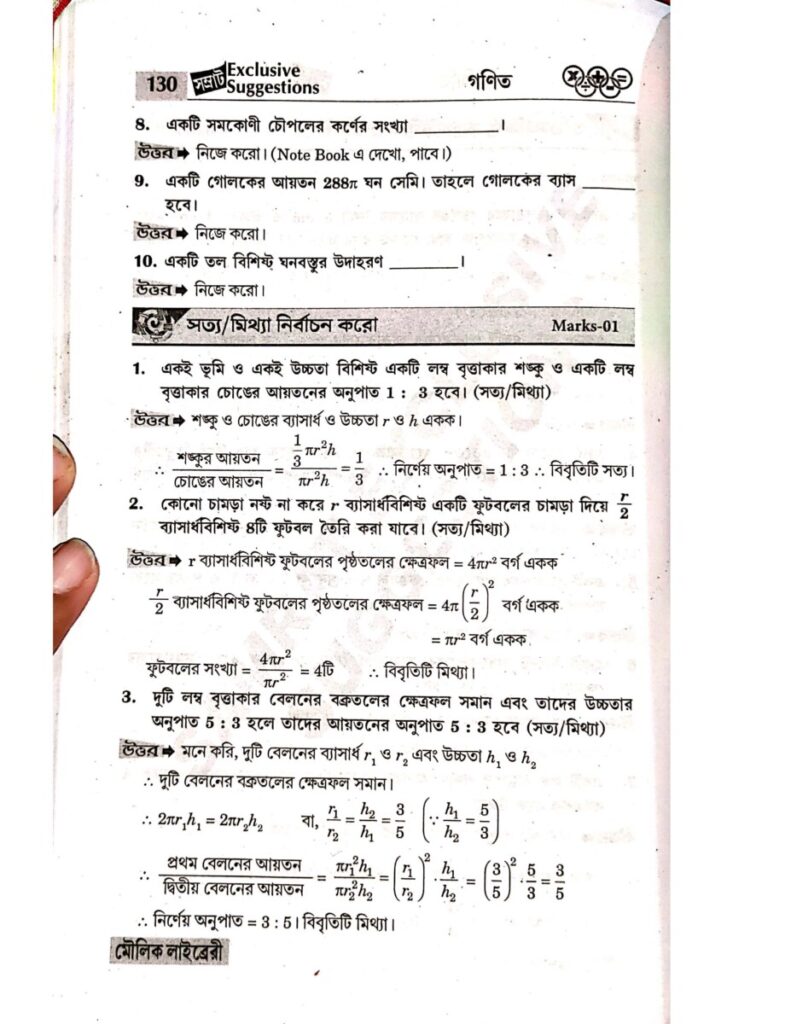 130 সম্রাট Exclusive Suggestions গণিত
8. একটি সমকোণী চৌপলের কর্ণের সংখ্যা __________।
উত্তর ➡ নিজে করো। (Note Book এ দেখো, পাবে।)
9. একটি গোলকের আয়তন 288π ঘন সেমি। তাহলে গোলকের ব্যাস ______
হবে।
উত্তর ➡ নিজে করো।
10. একটি তল বিশিষ্ট ঘনবস্তুর উদাহরণ ________।
উত্তর ➡ নিজে করো।
সত্য/মিথ্যা নির্বাচন করো Marks-01
1. একই ভূমি ও একই উচ্চতা বিশিষ্ট একটি লম্ব বৃত্তাকার শঙ্কু ও একটি লম্ব
বৃত্তাকার চোঙের আয়তনের অনুপাত 1 : 3 হবে। (সত্য/মিথ্যা)
উত্তর ➡ শঙ্কু ও চোঙের ব্যাসার্ধ ও উচ্চতা r ও h একক।
∴ শঙ্কুর আয়তন / চোঙের আয়তন = (1/3 πr²h) / (πr²h) = 1/3 ∴ নির্ণেয় অনুপাত = 1 : 3 ∴ বিবৃতিটি সত্য।
2. কোনো চামড়া নষ্ট না করে r ব্যাসার্ধবিশিষ্ট একটি ফুটবলের চামড়া দিয়ে r/2
ব্যাসার্ধবিশিষ্ট 8টি ফুটবল তৈরি করা যাবে। (সত্য/মিথ্যা)
উত্তর ➡ r ব্যাসার্ধবিশিষ্ট ফুটবলের পৃষ্ঠতলের ক্ষেত্রফল = 4πr² বর্গ একক
r/2 ব্যাসার্ধবিশিষ্ট ফুটবলের পৃষ্ঠতলের ক্ষেত্রফল = 4π(r/2)² বর্গ একক
= πr² বর্গ একক
ফুটবলের সংখ্যা = 4πr²/πr² = 4টি ∴ বিবৃতিটি মিথ্যা।
3. দুটি লম্ব বৃত্তাকার বেলনের বক্রতলের ক্ষেত্রফল সমান এবং তাদের উচ্চতার
অনুপাত 5 : 3 হলে তাদের আয়তনের অনুপাত 5 : 3 হবে (সত্য/মিথ্যা)
উত্তর ➡ মনে করি, দুটি বেলনের ব্যাসার্ধ r₁ ও r₂ এবং উচ্চতা h₁ ও h₂
∴ দুটি বেলনের বক্রতলের ক্ষেত্রফল সমান।
∴ 2πr₁h₁ = 2πr₂h₂ বা, r₁/r₂ = h₂/h₁ = 3/5 (∵ h₁/h₂ = 5/3)
∴ প্রথম বেলনের আয়তন / দ্বিতীয় বেলনের আয়তন = πr₁²h₁/πr₂²h₂ = (r₁/r₂)² · h₁/h₂ = (3/5)² · 5/3 = 3/5
∴ নির্ণেয় অনুপাত = 3 : 5। বিবৃতিটি মিথ্যা।
মৌলিক লাইব্রেরী